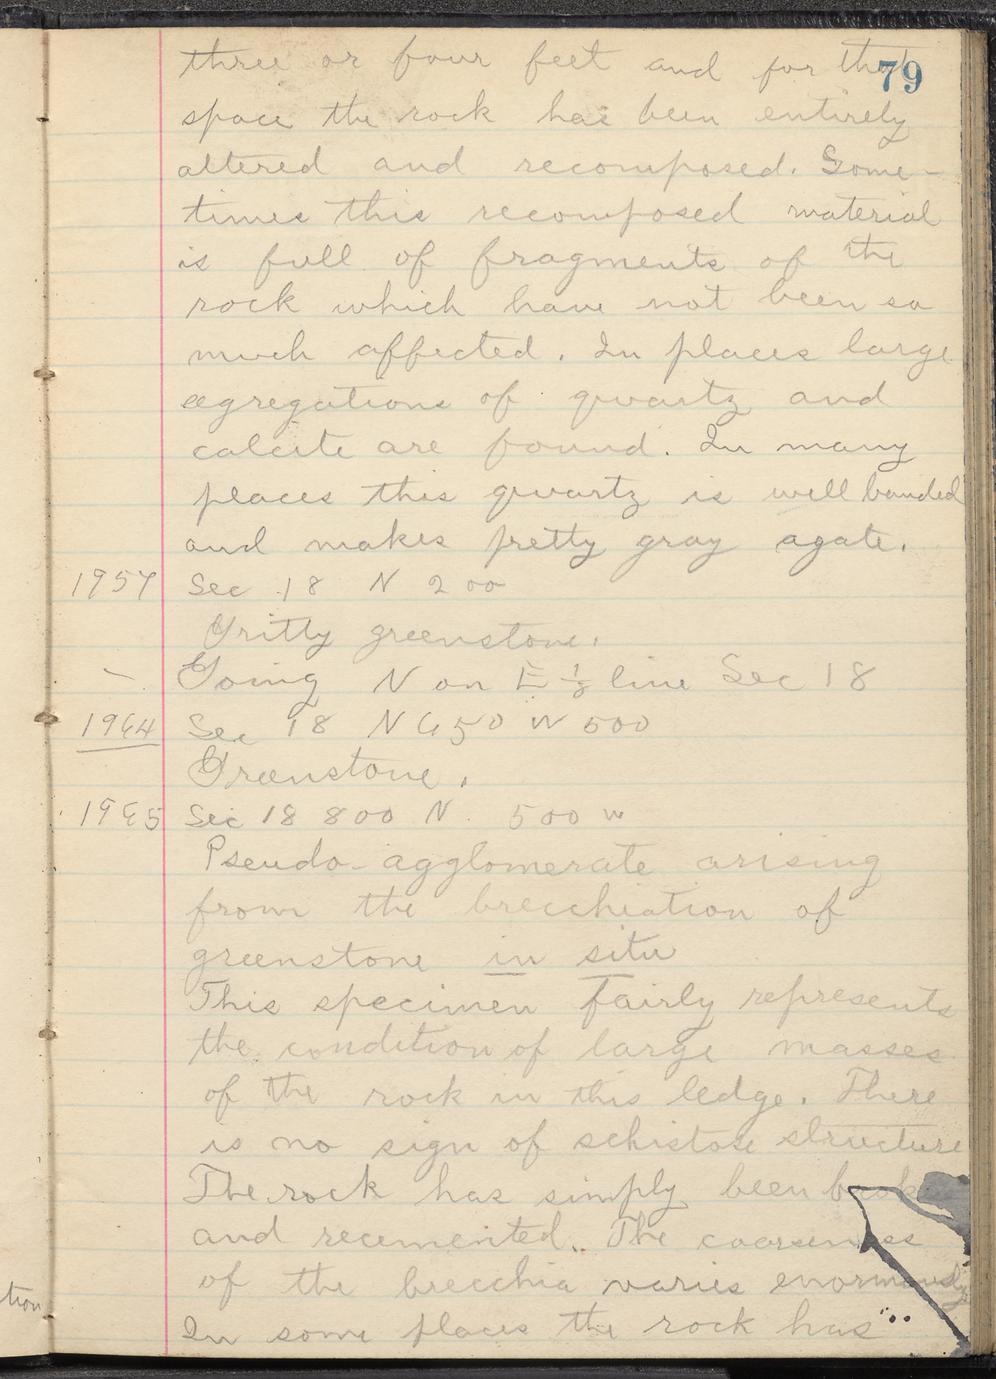 79
three or four feet and for that
space the rock has been entirely
altered and recomposed. Some-
times this recomposed material
is full of fragments of the
rock which have not been so
much affected. In places large
aegregations of quartz and
calcite are found. In many
places this quartz is well banded
and makes pretty gray agate.
Sec 18 N 200
Gritty greenstone.
Going N on E ½ line Sec 18
Sec 18 N 650 W 500
Greenstone.
Sec 18 800 N. 500 W
Pseudo-agglomerate arising
from the brecchiation of
greenstone in situ
This specimen fairly represents
the condition of large masses
of the rock in this ledge. There
is no sign of schistose structure
The rock has simply been
and recemented. The coarseness
of the brecchia varies enormously
In some places the rock has
tion